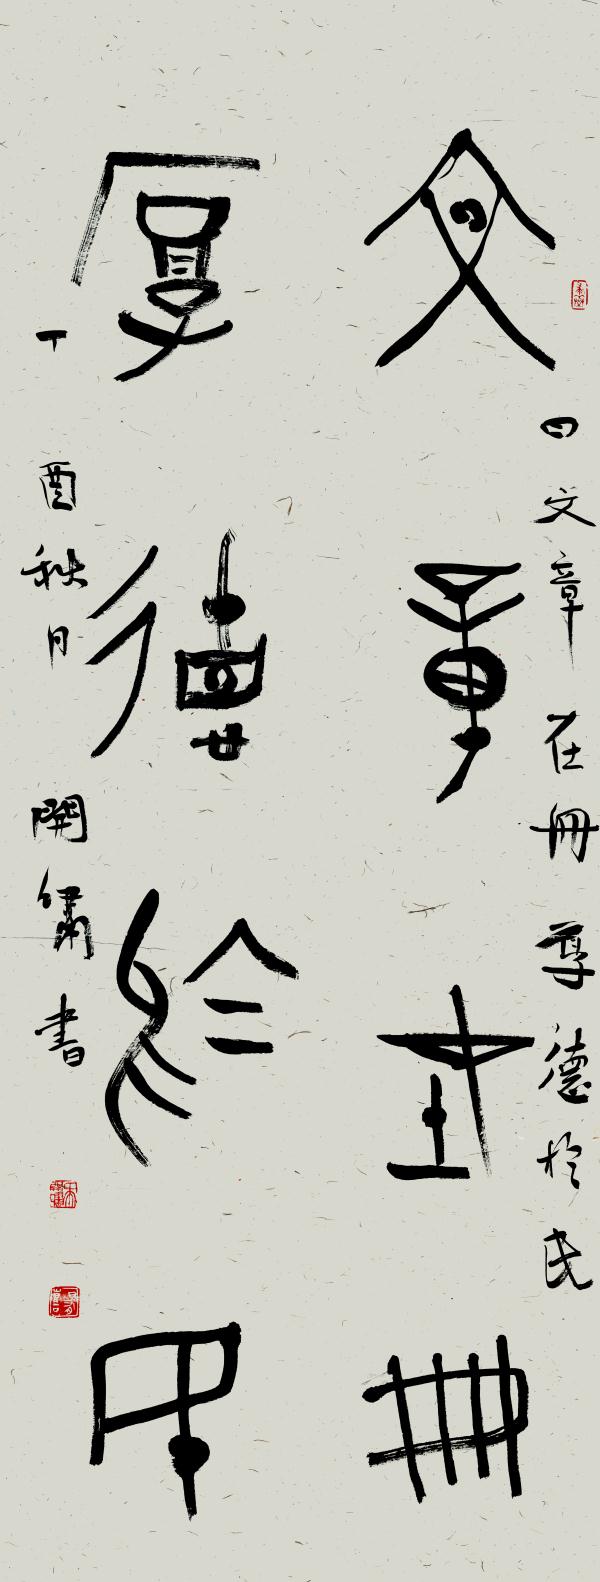 曰文章在冊厚德於民
文章在冊
厚德於民
丁酉秋月開嘯書